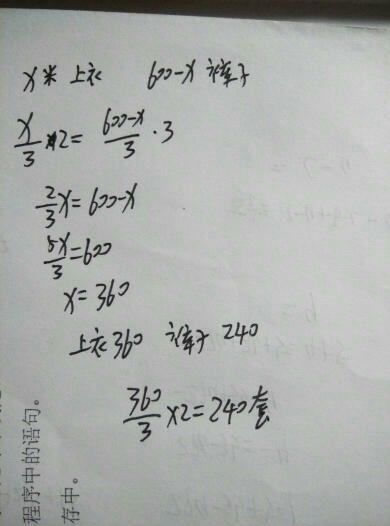 x米 上衣 600-x 裤子
x/3 ×2= (600-x)/3 ·3
2/3 x=600-x
5x/3=600
x=360
上衣360 裤子 240
360/3 ×2=240套
程序中的语句。
存中。